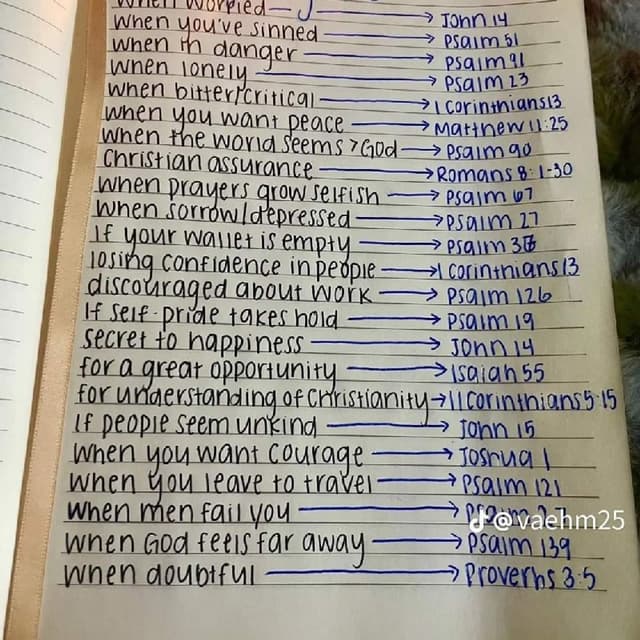 when worried → John 14
when you've sinned → Psalm 51
when in danger → Psalm 91
when lonely → Psalm 23
when bitter/critical → 1 Corinthians 13
when you want peace → Matthew 11:25
when the world seems > God → Psalm 90
Christian assurance → Romans 8:1-30
when prayers grow selfish → Psalm 67
when sorrow/depressed → Psalm 27
If your wallet is empty → Psalm 37
losing confidence in people → 1 Corinthians 13
discouraged about work → Psalm 126
If self-pride takes hold → Psalm 19
secret to happiness → John 14
for a great opportunity → Isaiah 55
for understanding of Christianity → 11 Corinthians 5:15
If people seem unkind → John 15
when you want courage → Joshua 1
when you leave to travel → Psalm 121
when men fail you → Psalm 27
@vaehm25
when God feels far away → Psalm 139
when doubtful → Proverbs 3:5